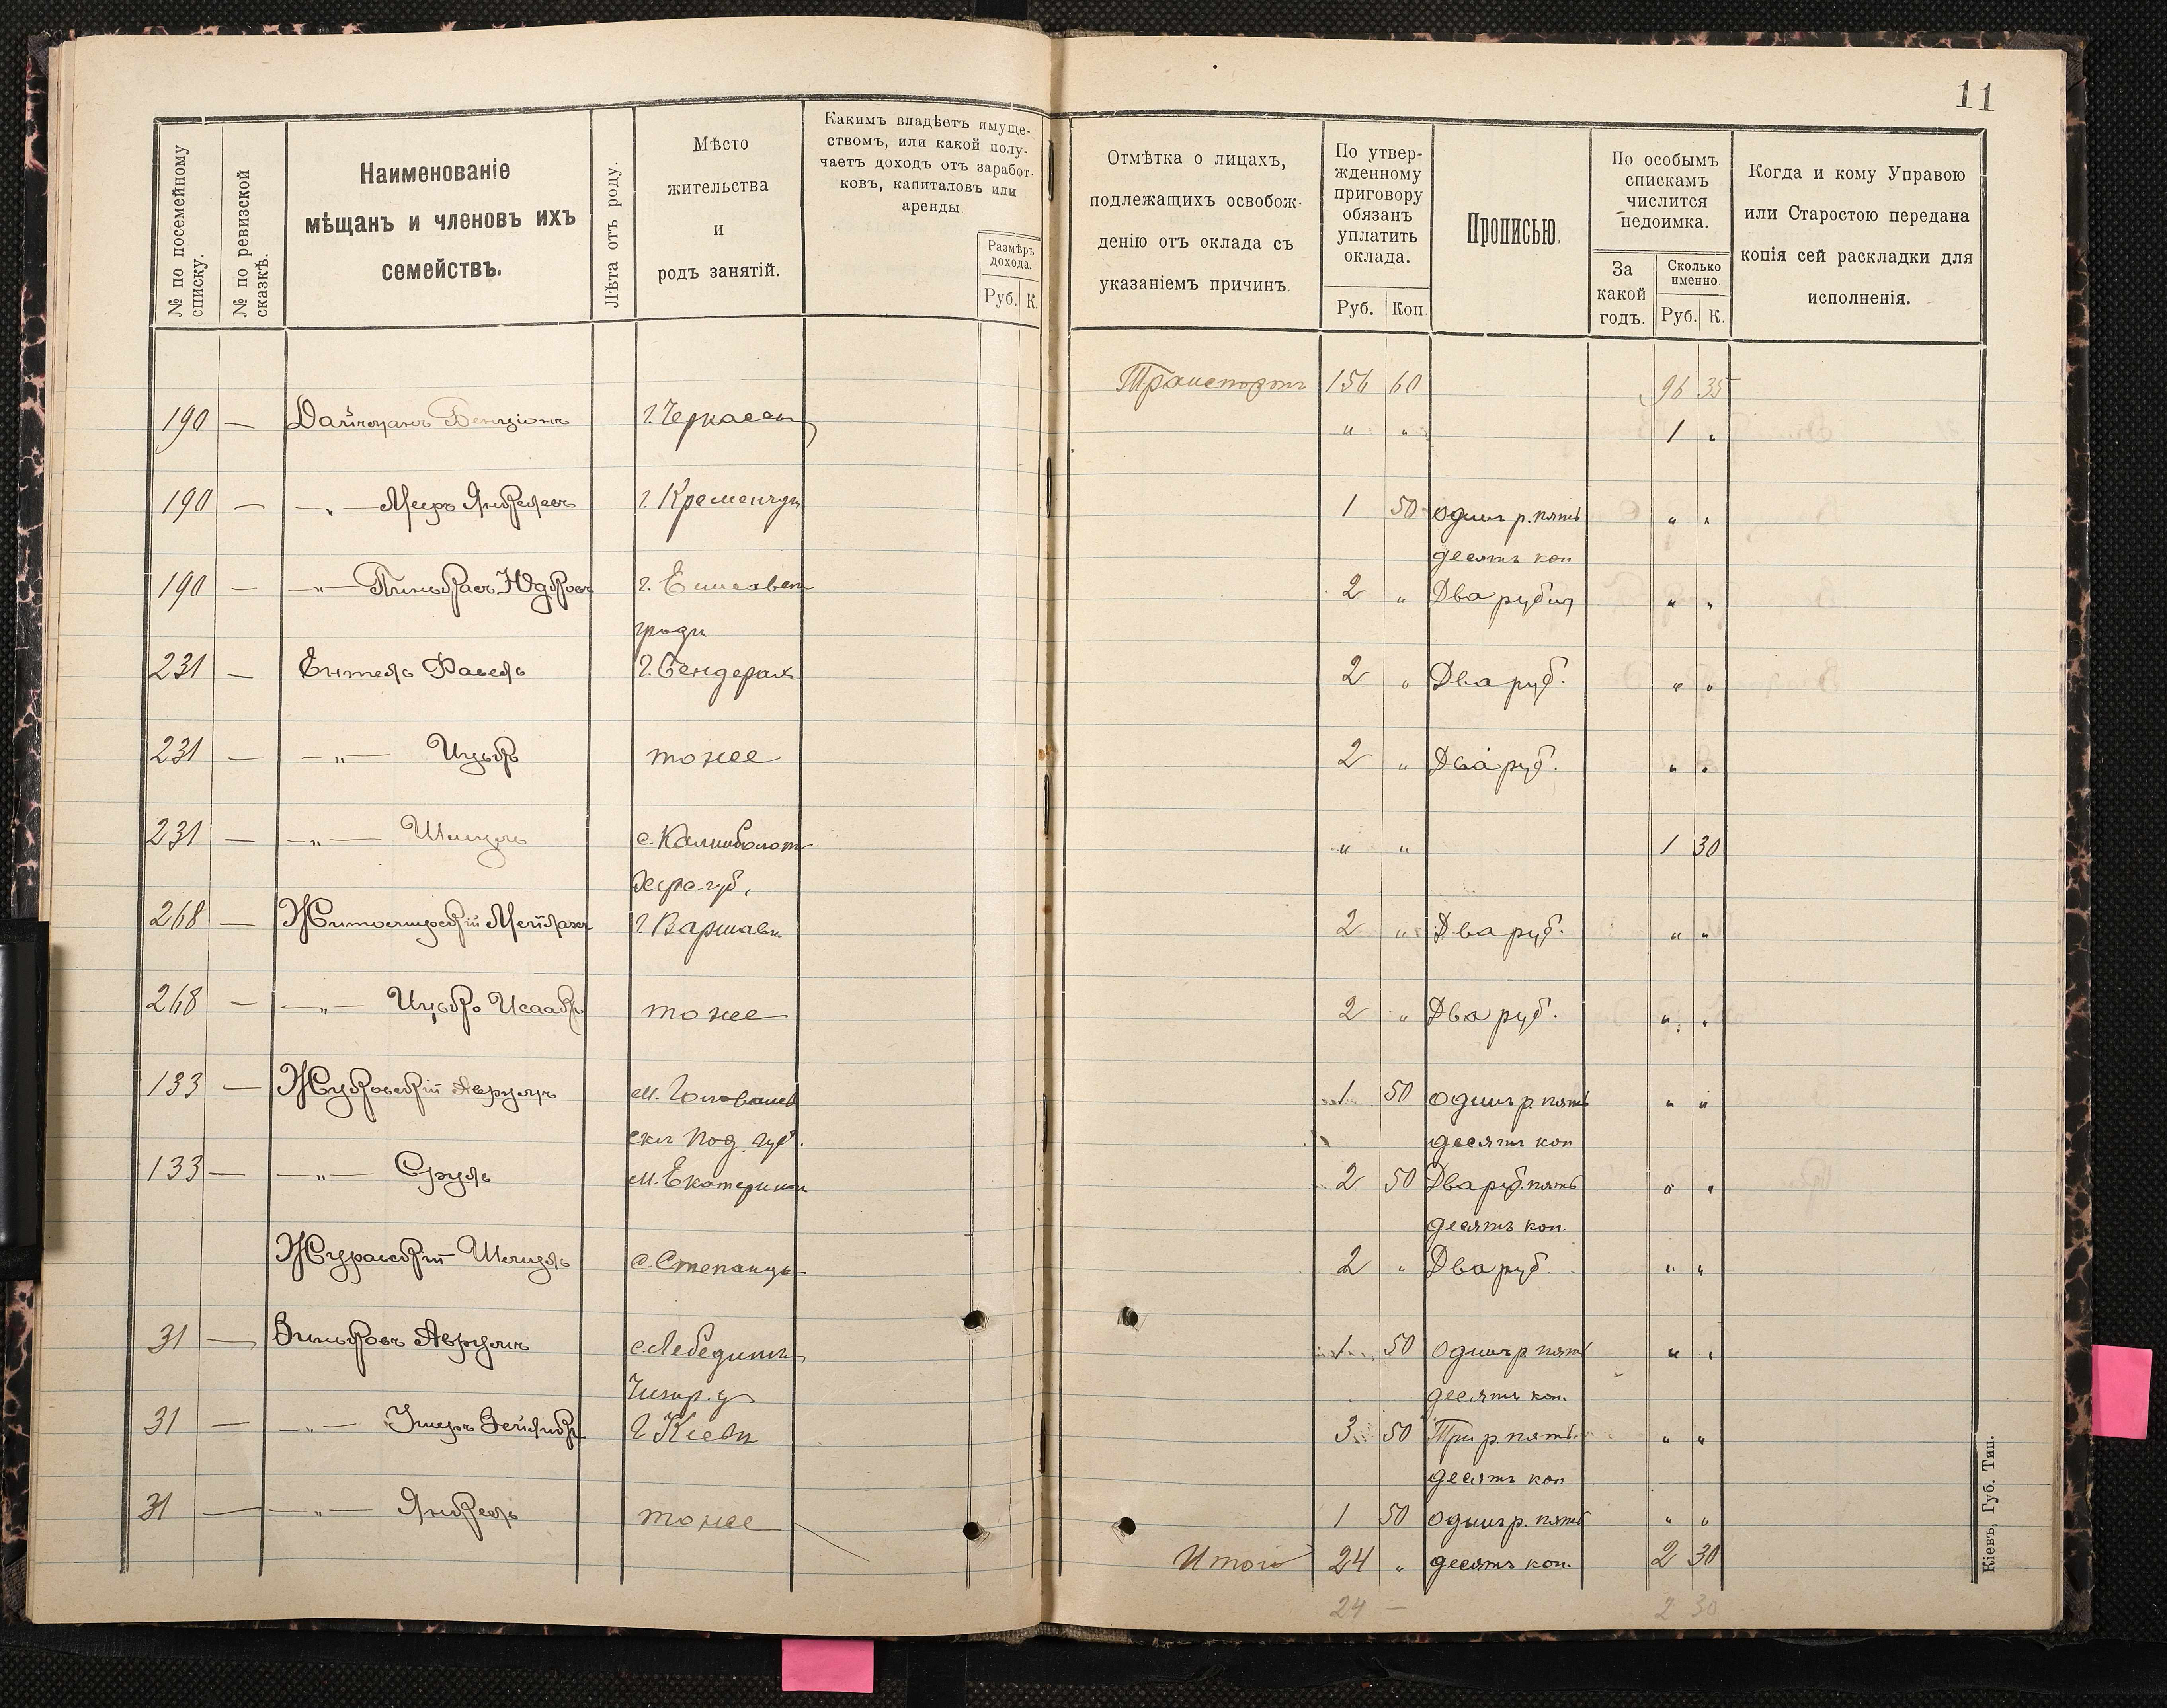 11
№ по посемейному списку.
№ по ревизской сказкѣ.
Наименованіе
мѣщанъ и членовъ ихъ
семействъ.
Лѣта отъ роду.
Мѣсто
жительства
и
родъ занятій.
Какимъ владѣетъ имуще-
ствомъ, или какой полу-
чаетъ доходъ отъ заработ-
ковъ, капиталовъ или
аренды
Размѣръ
дохода.
Руб. К.
Отмѣтка о лицахъ,
подлежащихъ освобож-
денію отъ оклада съ
указаніемъ причинъ.
По утвер-
жденному
приговору
обязанъ
уплатить
оклада.
Руб. Коп.
Прописью.
По особымъ
спискамъ
числится
недоимка.
За
какой
годъ.
Сколько
именно.
Руб. К.
Когда и кому Управою
или Старостою передана
копія сей раскладки для
исполненія.
Транспортъ 156 60 96 35
190 — Бенціонъ г. Черкассы " " 1 "
190 — — " — Мееръ Янкелевъ г. Кременчугъ 1 50 одинъ р. пять
десятъ коп
190 — — " — Пинькасъ г. Елисавет 2 " Два рубля " "
градъ
231 — Ентель Фавель г. Бендерахъ 2 " Два руб. " "
231 — — " — Ицько тоже 2 " Два руб. " "
231 — — " — Шмуль с. Калниболот " " 1 30
Херс. губ.
268 — Житомирскій Мейлахъ г. Варшавъ 2 " Два руб. " "
268 — — " — Ицько Исаакъ тоже 2 " Два руб. " "
133 — Жуковскій Аврумъ м. Голованев 1 50 одинъ р. пять " "
скъ Под. губ. десятъ коп
133 — — " — Сруль м. Екатерин 2 50 Два руб. пять " "
десятъ коп.
Журавскій Шмуль с. Степанцы 2 " Два руб. " "
31 — Зиньковъ Аврумъ с. Лебединъ 1 50 Одинъ р. пять " "
Чигир. у десятъ коп.
31 — — " — Зейликъ г. Кіевъ 3 50 Три р. пять " "
десятъ коп
31 — — " — Янкель тоже 1 50 одинъ р. пять " "
Итого 24 " десятъ коп. 2 30
24 — 2 30
Кіевъ, Губ. Тип.